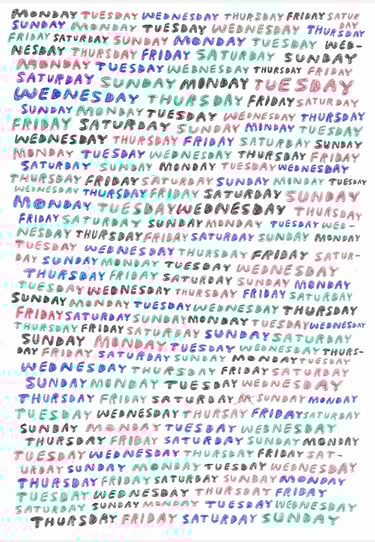 MONDAY TUESDAY WEDNESDAY THURSDAY FRIDAY SATUR
DAY
SUNDAY MONDAY TUESDAY WEDNESDAY THURSDAY
FRIDAY SATURDAY SUNDAY MONDAY TUESDAY WED-
NESDAY THURSDAY FRIDAY SATURDAY SUNDAY
MONDAY TUESDAY WEDNESDAY THURSDAY FRIDAY
SATURDAY SUNDAY MONDAY TUESDAY
WEDNESDAY THURSDAY FRIDAY SATURDAY
SUNDAY MONDAY TUESDAY WEDNESDAY THURSDAY
FRIDAY SATURDAY SUNDAY MONDAY TUESDAY
WEDNESDAY THURSDAY FRIDAY SATURDAY SUNDAY
MONDAY TUESDAY WEDNESDAY THURSDAY FRIDAY
SATURDAY SUNDAY MONDAY TUESDAY WEDNESDAY
THURSDAY FRIDAY SATURDAY SUNDAY MONDAY TUESDAY
WEDNESDAY THURSDAY FRIDAY SATURDAY SUNDAY
MONDAY TUESDAY WEDNESDAY THURSDAY
FRIDAY SATURDAY SUNDAY MONDAY TUESDAY WED-
NESDAY THURSDAY FRIDAY SATURDAY SUNDAY MONDAY
TUESDAY WEDNESDAY THURSDAY FRIDAY SATUR-
DAY SUNDAY MONDAY TUESDAY WEDNESDAY
THURSDAY FRIDAY SATURDAY SUNDAY MONDAY
TUESDAY WEDNESDAY THURSDAY FRIDAY SATURDAY
SUNDAY MONDAY TUESDAY WEDNESDAY THURSDAY
FRIDAY SATURDAY SUNDAY MONDAY TUESDAY WEDNESDAY
THURSDAY FRIDAY SATURDAY SATURDAY SUNDAY
SUNDAY MONDAY TUESDAY WEDNESDAY THURS-
DAY FRIDAY SATURDAY SUNDAY MONDAY TUESDAY
WEDNESDAY THURSDAY FRIDAY SATURDAY
SUNDAY MONDAY TUESDAY WEDNESDAY
THURSDAY FRIDAY SATURDAY SUNDAY MONDAY
TUESDAY WEDNESDAY THURSAY FRIDAY SATURDAY
SUNDAY MONDAY TUESDAY WEDNESDAY
THURSDAY FRIDAY SATURDAY SUNDAY MONDAY
TUESDAY WEDNESDAY THURSDAY FRIDAY SAT-
URDAY SUNDAY MONDAY TUESDAY WEDNESDAY
THURSDAY FRIDAY SATURDAY SUNDAY MONDAY
TUESDAY WEDNESDAY THURSDAY FRIDAY
SATURDAY SUNDAY MONDAY TUESDAY WEDNESDAY
THURSDAY FRIDAY SATURDAY SUNDAY